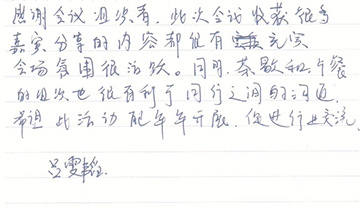 感谢会议组织者，此次会议收获很多
嘉宾分享的内容都很有充实
会场氛围很活跃。同时，茶歇和午餐
的组织也很有利于同行之间的沟通
希望此活动能年年开展，促进行业交流
吕雯